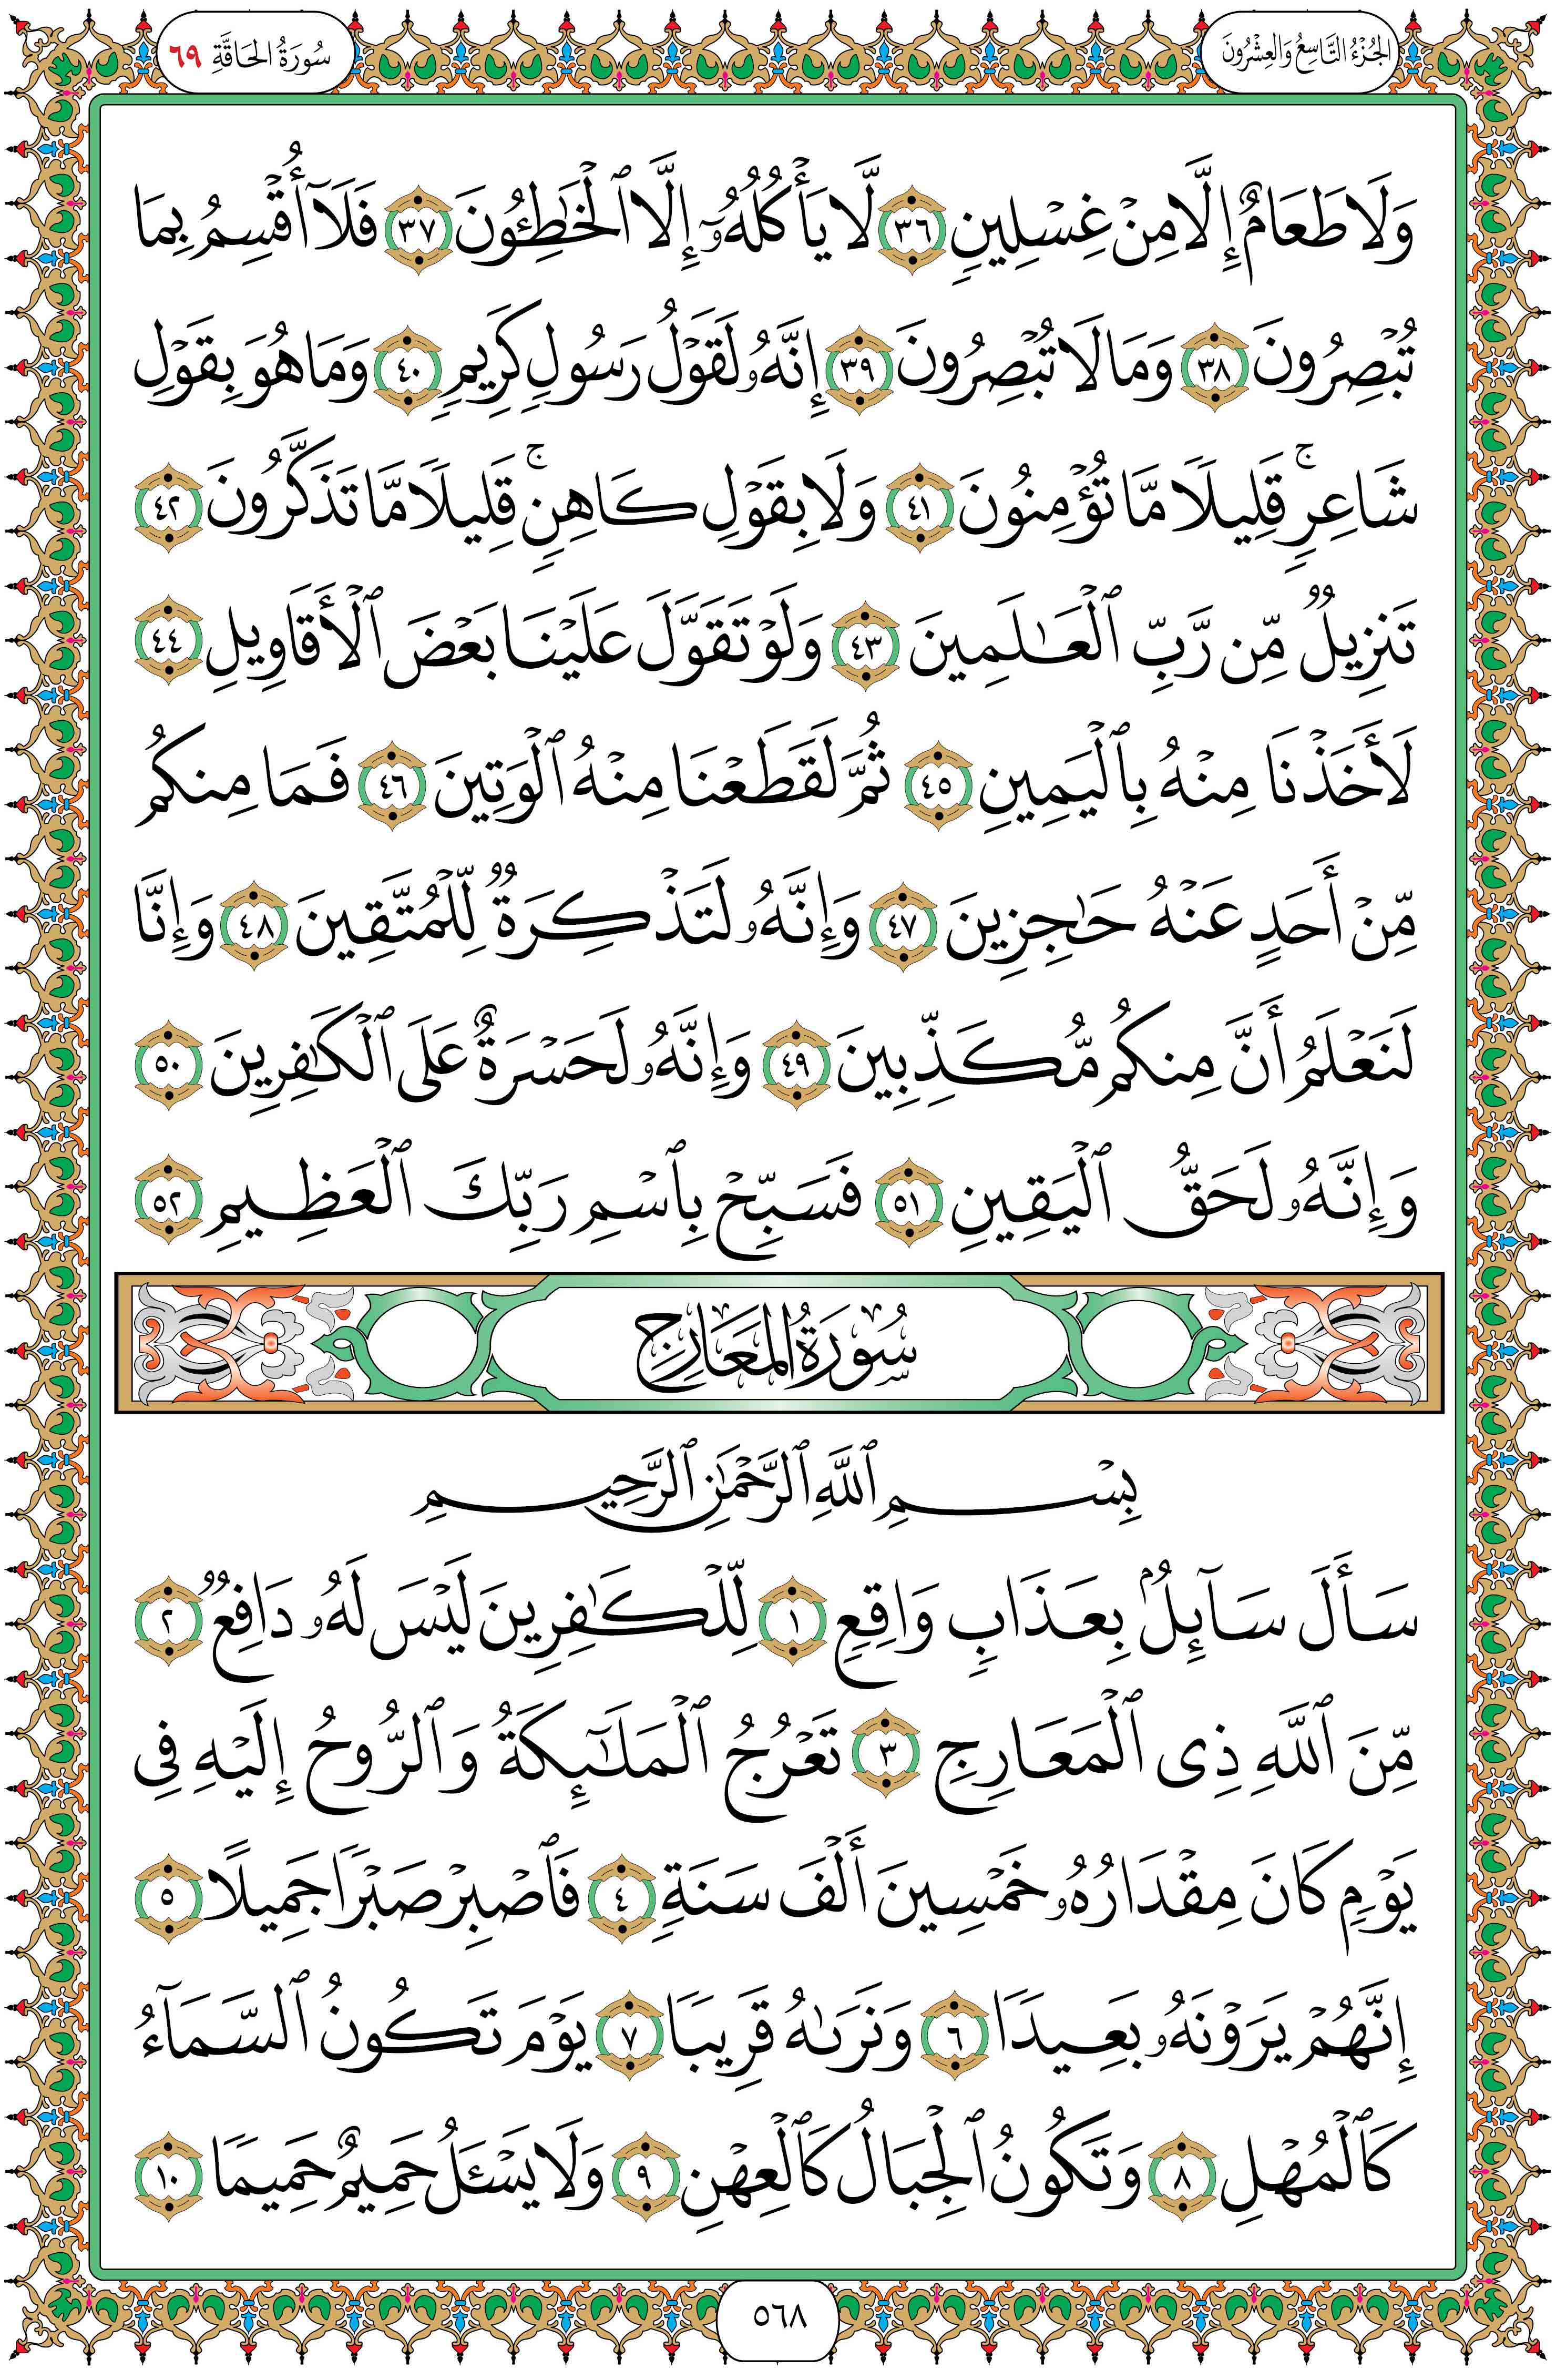 الجُزْءُ التَّاسِعُ وَالعِشْرُونَ
سُورَةُ الحَاقَّةِ ٦٩
وَلَا طَعَامٌ إِلَّا مِنْ غِسْلِينٍ ٣٦ لَّا يَأْكُلُهُۥٓ إِلَّا ٱلْخَٰطِـُٔونَ ٣٧ فَلَآ أُقْسِمُ بِمَا
تُبْصِرُونَ ٣٨ وَمَا لَا تُبْصِرُونَ ٣٩ إِنَّهُۥ لَقَوْلُ رَسُولٍ كَرِيمٍ ٤٠ وَمَا هُوَ بِقَوْلِ
شَاعِرٍ ۚ قَلِيلًا مَّا تُؤْمِنُونَ ٤١ وَلَا بِقَوْلِ كَاهِنٍ ۚ قَلِيلًا مَّا تَذَكَّرُونَ ٤٢
تَنزِيلٌ مِّن رَّبِّ ٱلْعَٰلَمِينَ ٤٣ وَلَوْ تَقَوَّلَ عَلَيْنَا بَعْضَ ٱلْأَقَاوِيلِ ٤٤
لَأَخَذْنَا مِنْهُ بِٱلْيَمِينِ ٤٥ ثُمَّ لَقَطَعْنَا مِنْهُ ٱلْوَتِينَ ٤٦ فَمَا مِنكُم
مِّنْ أَحَدٍ عَنْهُ حَٰجِزِينَ ٤٧ وَإِنَّهُۥ لَتَذْكِرَةٌ لِّلْمُتَّقِينَ ٤٨ وَإِنَّا
لَنَعْلَمُ أَنَّ مِنكُم مُّكَذِّبِينَ ٤٩ وَإِنَّهُۥ لَحَسْرَةٌ عَلَى ٱلْكَٰفِرِينَ ٥٠
وَإِنَّهُۥ لَحَقُّ ٱلْيَقِينِ ٥١ فَسَبِّحْ بِٱسْمِ رَبِّكَ ٱلْعَظِيمِ ٥٢
سُورَةُ المَعَارِجِ
بِسْمِ ٱللَّهِ ٱلرَّحْمَٰنِ ٱلرَّحِيمِ
سَأَلَ سَآئِلٌۢ بِعَذَابٍ وَاقِعٍ ١ لِّلْكَٰفِرِينَ لَيْسَ لَهُۥ دَافِعٌ ٢
مِّنَ ٱللَّهِ ذِى ٱلْمَعَارِجِ ٣ تَعْرُجُ ٱلْمَلَٰٓئِكَةُ وَٱلرُّوحُ إِلَيْهِ فِى
يَوْمٍ كَانَ مِقْدَارُهُۥ خَمْسِينَ أَلْفَ سَنَةٍ ٤ فَٱصْبِرْ صَبْرًا جَمِيلًا ٥
إِنَّهُمْ يَرَوْنَهُۥ بَعِيدًا ٦ وَنَرَىٰهُ قَرِيبًا ٧ يَوْمَ تَكُونُ ٱلسَّمَآءُ
كَٱلْمُهْلِ ٨ وَتَكُونُ ٱلْجِبَالُ كَٱلْعِهْنِ ٩ وَلَا يَسْـَٔلُ حَمِيمٌ حَمِيمًا ١٠
٥٦٨